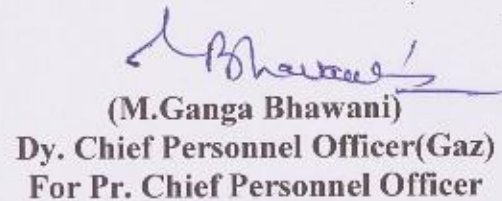 Bhawani
(M.Ganga Bhawani)
Dy. Chief Personnel Officer(Gaz)
For Pr. Chief Personnel Officer